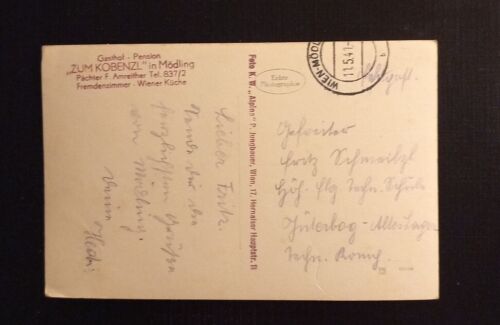 Gasthof - Pension
„ZUM KOBENZL" in Mödling
Pächter F. Amreither Tel. 837/2
Fremdenzimmer - Wiener Küche
Foto K. W. „Alpina" P. Jungbauer, Wien, 17. Hernalser Hauptstr. 11
Echte
Photographie
WIEN-MÖDL
11.5.41
b
Feldpost.
Lieber Fritz.
Sende dir die
herzlichsten Grüsse
von Mödling.
Gefreiter
Fritz
Höh. Flg. Techn. Schule
Jüterbog - Altes Lager
Techn.